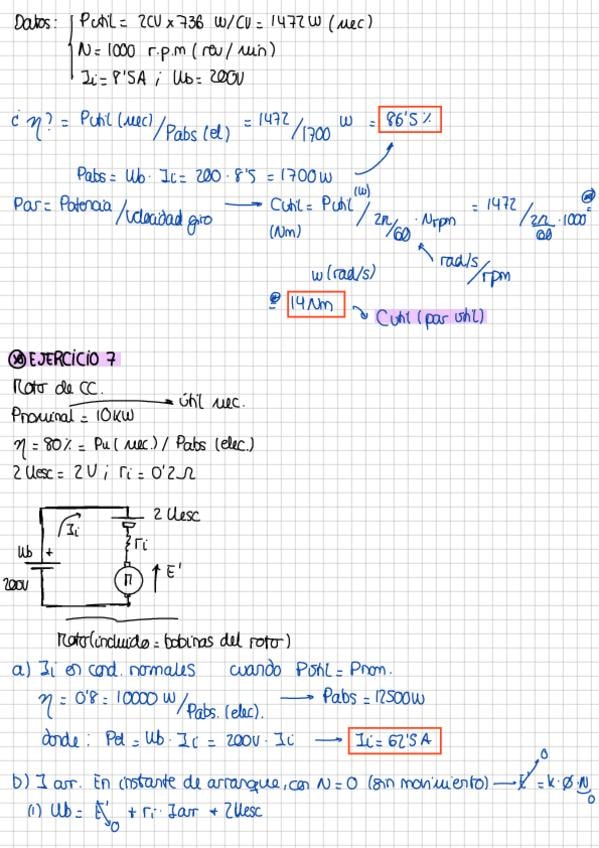 Datos: Pútil = 2CV x 736 W/CV = 1472W (mec)
N = 1000 r.p.m (rev/min)
Ii = 8'5A ; Ub = 200V
¿ η? = Pútil (mec) / Pabs (el) = 1472/1700 W = 86'5 %
Pabs = Ub · Ii = 200 · 8'5 = 1700 W
Par = Potencia / velocidad giro → Cútil = Pútil (W) / 2π/60 · Nrpm = 1472 / 2π/60 · 1000 =
(Nm)
w (rad/s)
rad/s / rpm
= 14 Nm Cútil (par útil)
EJERCICIO 7
Motor de CC.
Pnominal = 10KW → útil mec.
η = 80% = Pu (mec.) / Pabs (elec.)
2 Uesc = 2V ; ri = 0'2 Ω
2 Uesc
Ii
Ub +
200V
ri
M
E'
Motor (incluido = bobinas del rotor)
a) Ii en cond. normales cuando Pútil = Pnom.
η = 0'8 = 10000 W / Pabs. (elec). → Pabs = 12500W
donde : Pel = Ub · Ii = 200V · Ii → Ii = 62'5 A
b) I arr. En instante de arranque, con N = 0 (sin movimiento) → E' = K · Ø · N
0
0
(1) Ub = E' + ri · Iarr + 2Uesc
0